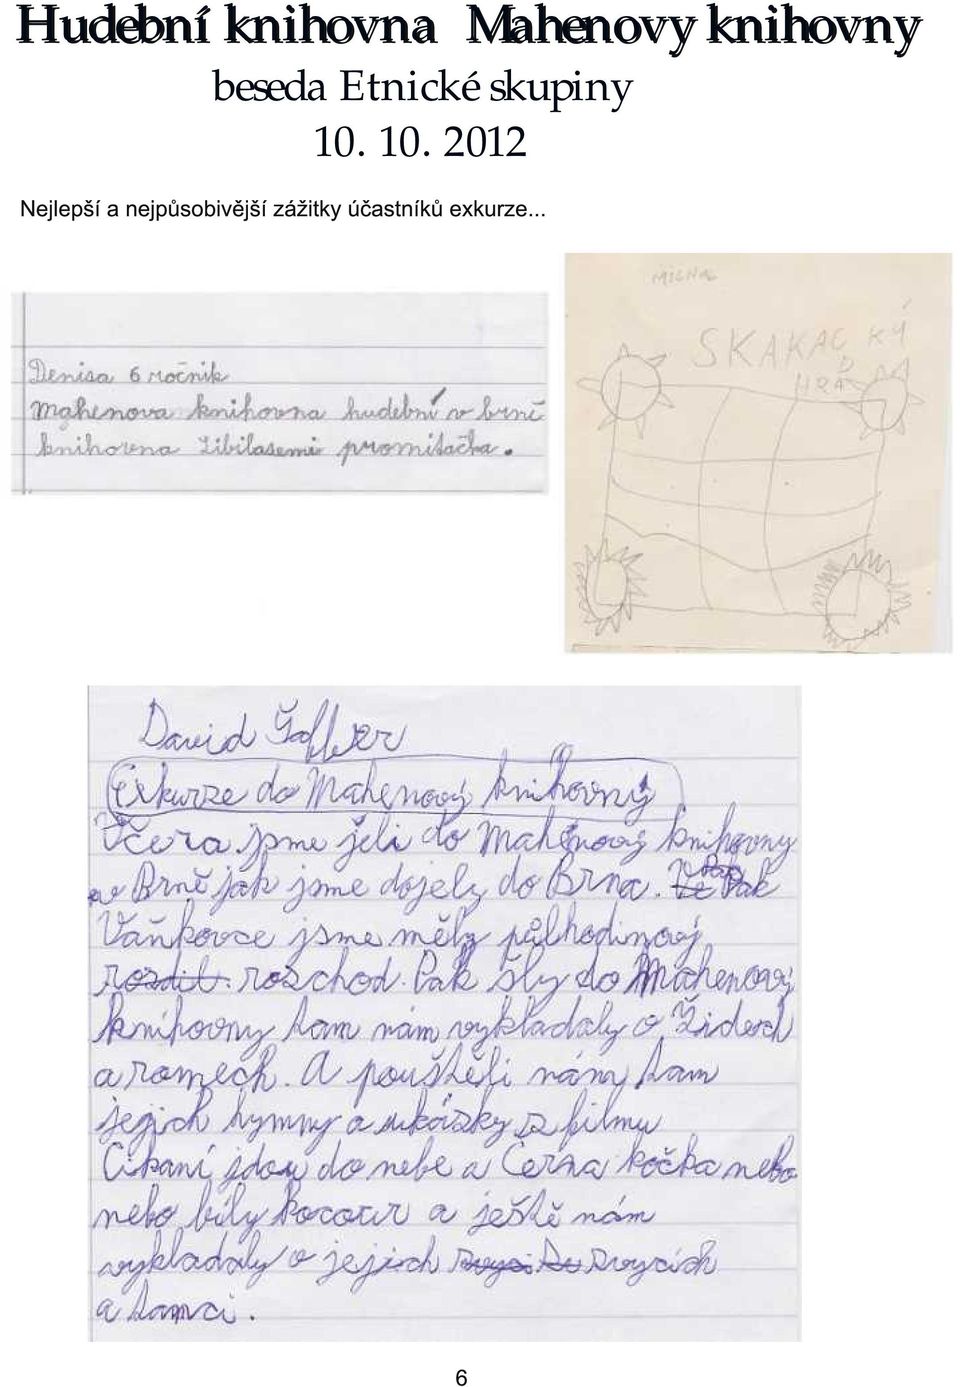 Hudební knihovna Mahenovy knihovny
beseda Etnické skupiny
10. 10. 2012
Nejlepší a nejpůsobivější zážitky účastníků exkurze...
Denisa 6 ročnik
Mahenova knihovna hudební v brně
knihovna Libilasemi promitačka.
MICHAL
SKAKACÍ
HRAD
David
Exkurze do Mahenový knihovny
Včera jsme jeli do Mahenový knihovny
v Brně jak jsme dojely do Brna. Pak
Vaňkovce jsme měly půlhodinový
rozdil. roschod. Pak šly do Mahenový
knihovny tam nám vykladaly o Židech
a romech. A pouštěli nám tam
jegich hymny a ukásky s filmu
Cikaní jdou do nebe a Černa kočka nebo
nebo bíly kocour a ještě nám
vykladaly o jejich zvycích
a tanci.
6